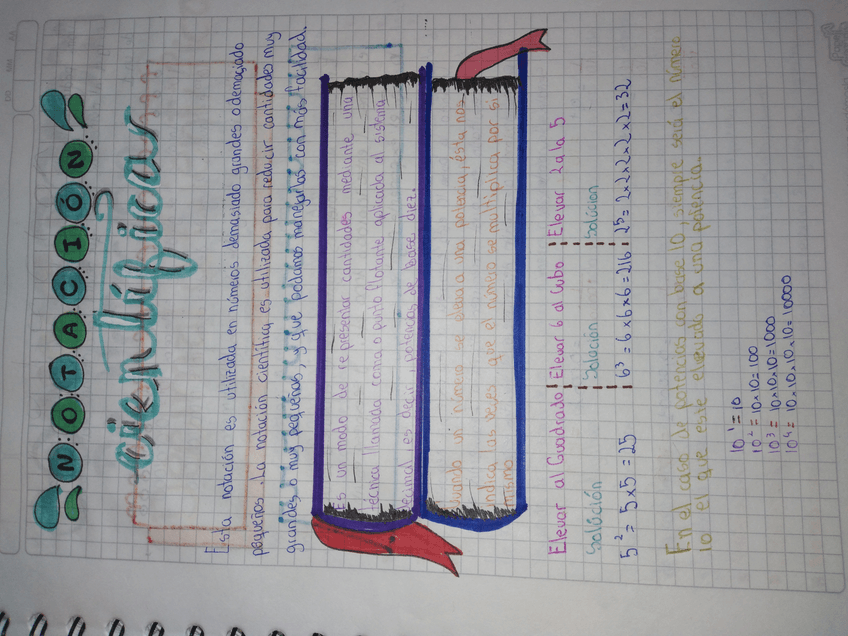 NOTACIÓN
científicas
Esta notación es utilizada en números demasiado grandes o demasiado
pequeños. La notación científica es utilizada para reducir cantidades muy
grandes o muy pequeñas, y que podamos manejarlas con más facilidad.
Es un modo de representar cantidades mediante una
técnica llamada coma o punto flotante aplicada al sistema
decimal es decir, potencias de base diez.
cuando un número se eleva a una potencia, ésta nos
indica las veces que el número se multiplica por si
mismo
Elevar al Cuadrado
Solución
5² = 5x5 = 25
Elevar 6 al Cubo
Solución
6³ = 6x6x6 = 216
Elevar 2 a la 5
Solución
2⁵ = 2x2x2x2x2 = 32
En el caso de potencias con base 10, siempre será el número
10 el que este elevado a una potencia.
10¹ = 10
10² = 10x10 = 100
10³ = 10x10x10 = 1000
10⁴ = 10x10x10x10 = 10000